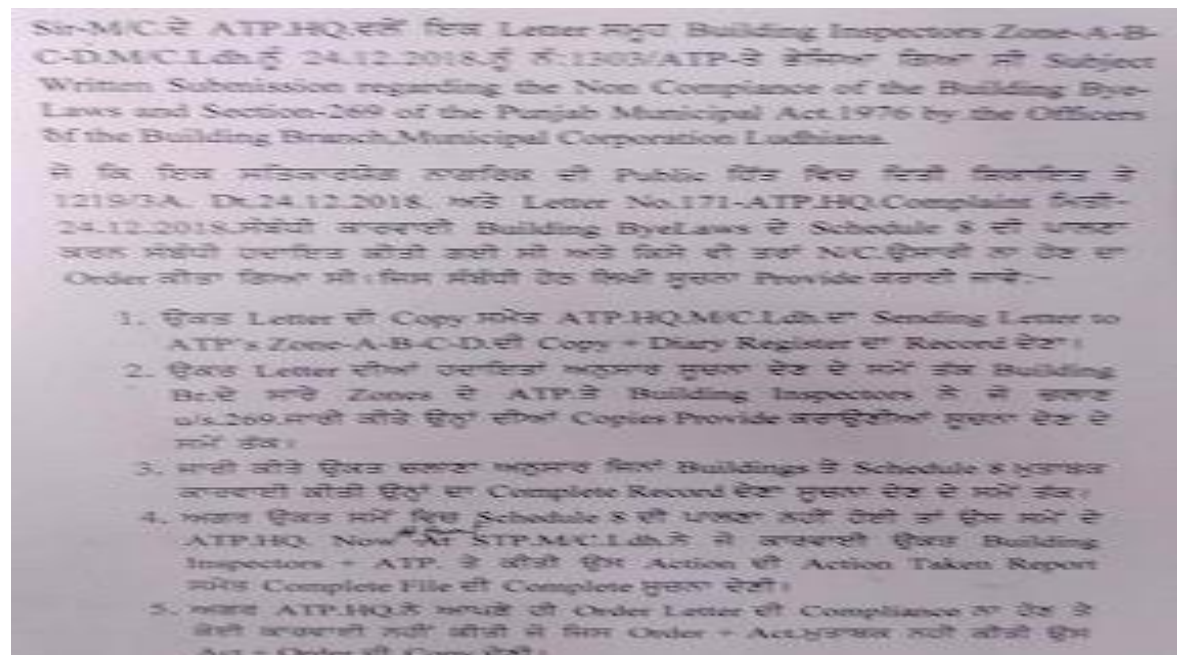 Sir-M/C.ਦੇ ATP.HQ.ਵਲੋਂ ਇਕ Letter ਸਮੂਹ Building Inspectors Zone-A-B-
C-D.M/C.Ldh.ਨੂੰ 24.12.2018.ਨੂੰ ਨੰ.1303/ATP-ਤੇ ਭੇਜਿਆ ਗਿਆ ਸੀ Subject
Written Submission regarding the Non Compiance of the Building Bye-
Laws and Section-269 of the Punjab Municipal Act.1976 by the Officers
of the Building Branch,Municipal Corporation Ludhiana.
ਜੋ ਕਿ ਇਕ ਸਤਿਕਾਰਯੋਗ ਨਾਗਰਿਕ ਦੀ Public ਹਿੱਤ ਵਿਚ ਦਿਤੀ ਸ਼ਿਕਾਇਤ ਤੇ
1219/3A. Dt.24.12.2018. ਅਤੇ Letter No.171-ATP.HQ.Complaint ਮਿਤੀ-
24.12.2018.ਸੰਬੰਧੀ ਕਾਰਵਾਈ Building ByeLaws ਦੇ Schedule 8 ਦੀ ਪਾਲਣਾ
ਕਰਨ ਸੰਬੰਧੀ ਹਦਾਇਤ ਕੀਤੀ ਗਈ ਸੀ ਅਤੇ ਕਿਸੇ ਵੀ ਤਰਾਂ N/C.ਉਸਾਰੀ ਨਾ ਹੋਣ ਦਾ
Order ਕੀਤਾ ਗਿਆ ਸੀ।ਜਿਸ ਸੰਬੰਧੀ ਹੇਠ ਲਿਖੀ ਸੂਚਨਾ Provide ਕਰਾਈ ਜਾਵੇ:-
1. ਉਕਤ Letter ਦੀ Copy ਸਮੇਤ ATP.HQ.M/C.Ldh.ਦਾ Sending Letter to
ATP's Zone-A-B-C-D.ਦੀ Copy + Diary Register ਦਾ Record ਦੇਣਾ।
2. ਉਕਤ Letter ਦੀਆਂ ਹਦਾਇਤਾਂ ਅਨੁਸਾਰ ਸੂਚਨਾ ਦੇਣ ਦੇ ਸਮੇਂ ਤੱਕ Building
Br.ਦੇ ਸਾਰੇ Zones ਦੇ ATP.ਤੇ Building Inspectors ਨੇ ਜੋ ਚਲਾਣ
u/s.269.ਜਾਰੀ ਕੀਤੇ ਉਨ੍ਹਾਂ ਦੀਆਂ Copies Provide ਕਰਾਉਣੀਆਂ ਸੂਚਨਾ ਦੇਣ ਦੇ
ਸਮੇਂ ਤੱਕ।
3. ਜਾਰੀ ਕੀਤੇ ਉਕਤ ਚਲਾਣਾ ਅਨੁਸਾਰ ਜਿਨਾਂ Buildings ਤੇ Schedule 8 ਮੁਤਾਬਕ
ਕਾਰਵਾਈ ਕੀਤੀ ਉਨ੍ਹਾਂ ਦਾ Complete Record ਦੇਣਾ ਸੂਚਨਾ ਦੇਣ ਦੇ ਸਮੇਂ ਤੱਕ।
4. ਅਗਰ ਉਕਤ ਸਮੇਂ ਵਿਚ Schedule 8 ਦੀ ਪਾਲਣਾ ਨਹੀਂ ਹੋਈ ਤਾਂ ਉਸ ਸਮੇਂ ਦੇ
ATP.HQ. Now At STP.M/C.Ldh.ਨੇ ਜੋ ਕਾਰਵਾਈ ਉਕਤ Building
Inspectors + ATP. ਤੇ ਕੀਤੀ ਉਸ Action ਦੀ Action Taken Report
ਸਮੇਤ Complete File ਦੀ Complete ਸੂਚਨਾ ਦੇਣੀ।
5. ਅਗਰ ATP.HQ.ਨੇ ਆਪਣੇ ਹੀ Order Letter ਦੀ Compliance ਨਾ ਹੋਣ ਤੇ
ਕੋਈ ਕਾਰਵਾਈ ਨਹੀਂ ਕੀਤੀ ਜੋ ਜਿਸ Order + Act.ਮੁਤਾਬਕ ਨਹੀਂ ਕੀਤੀ ਉਸ
Act + Order ਦੀ Copy ਦੇਣੀ।